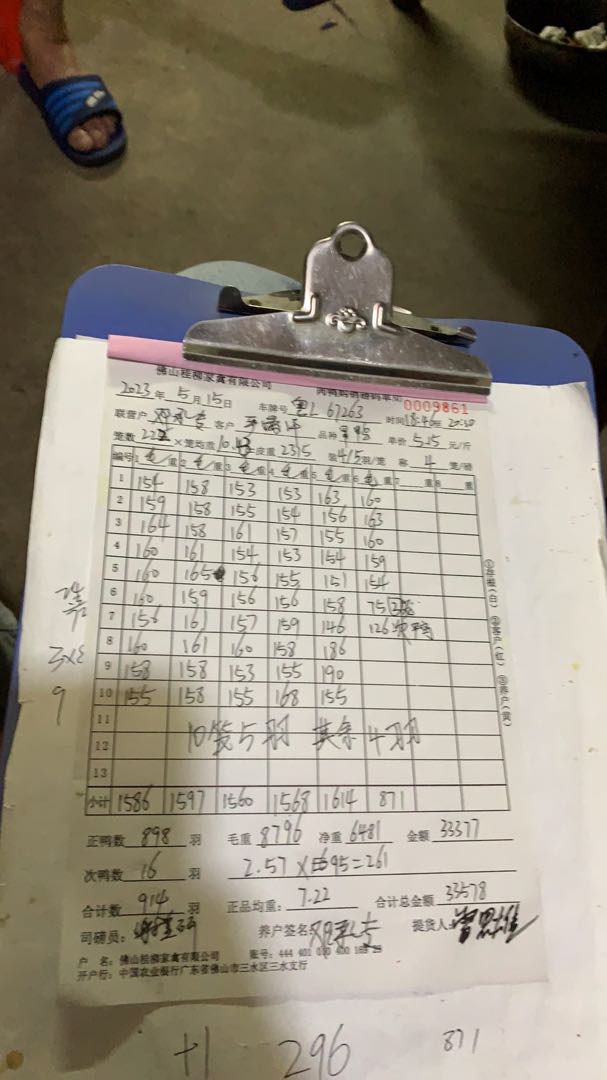 佛山桂柳家禽有限公司 肉鸭购销磅码单 0009861
2023年 5月15日 车牌号 粤L 67263 时间 18:46至 20:30
联营户 客户 品种 单价 5.15 元/斤
笼数 222 ×笼均重 10.43 =皮重 2315 装 4/5 羽/笼 称 4 笼/磅
编号 1 毛重 2 毛重 3 毛重 4 毛重 5 毛重 6 毛重 7 重 8 重
1 154 158 153 153 163 160
2 159 158 155 154 156 163
3 164 158 161 157 155 160
4 160 161 154 153 154 159
5 160 165 156 155 151 154
6 160 159 156 156 158 75
7 156 161 157 159 146 126 次鸭
8 160 161 160 158 186
9 158 158 153 155 190
10 155 158 155 168 155
11
12 10笼5羽 其余4羽
13
小计 1586 1597 1560 1568 1614 871
正鸭数 898 羽 毛重 8796 净重 6481 金额 33377
次鸭数 16 羽 2.57 × 95=261
合计数 914 羽 正品均重: 7.22 合计总金额 33578
司磅员: 养户签名: 提货人:
户 名: 佛山桂柳家禽有限公司 账号: 444 401 0
开户行: 中国农业银行广东省佛山市三水区三水支行
①存根(白) ②客户(红) ③养户(黄)
9
+1 296 871